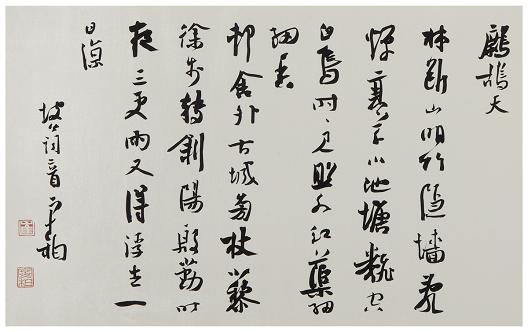 鷓鴣天
林斷山明竹隱墻亂
蟬衰草小池塘翻空
白鳥時〻見照水紅蕖細
細香
邨舍外古城旁杖藜
徐步轉斜陽殷勤昨
夜三更雨又得浮生一
日涼
坡詞一首